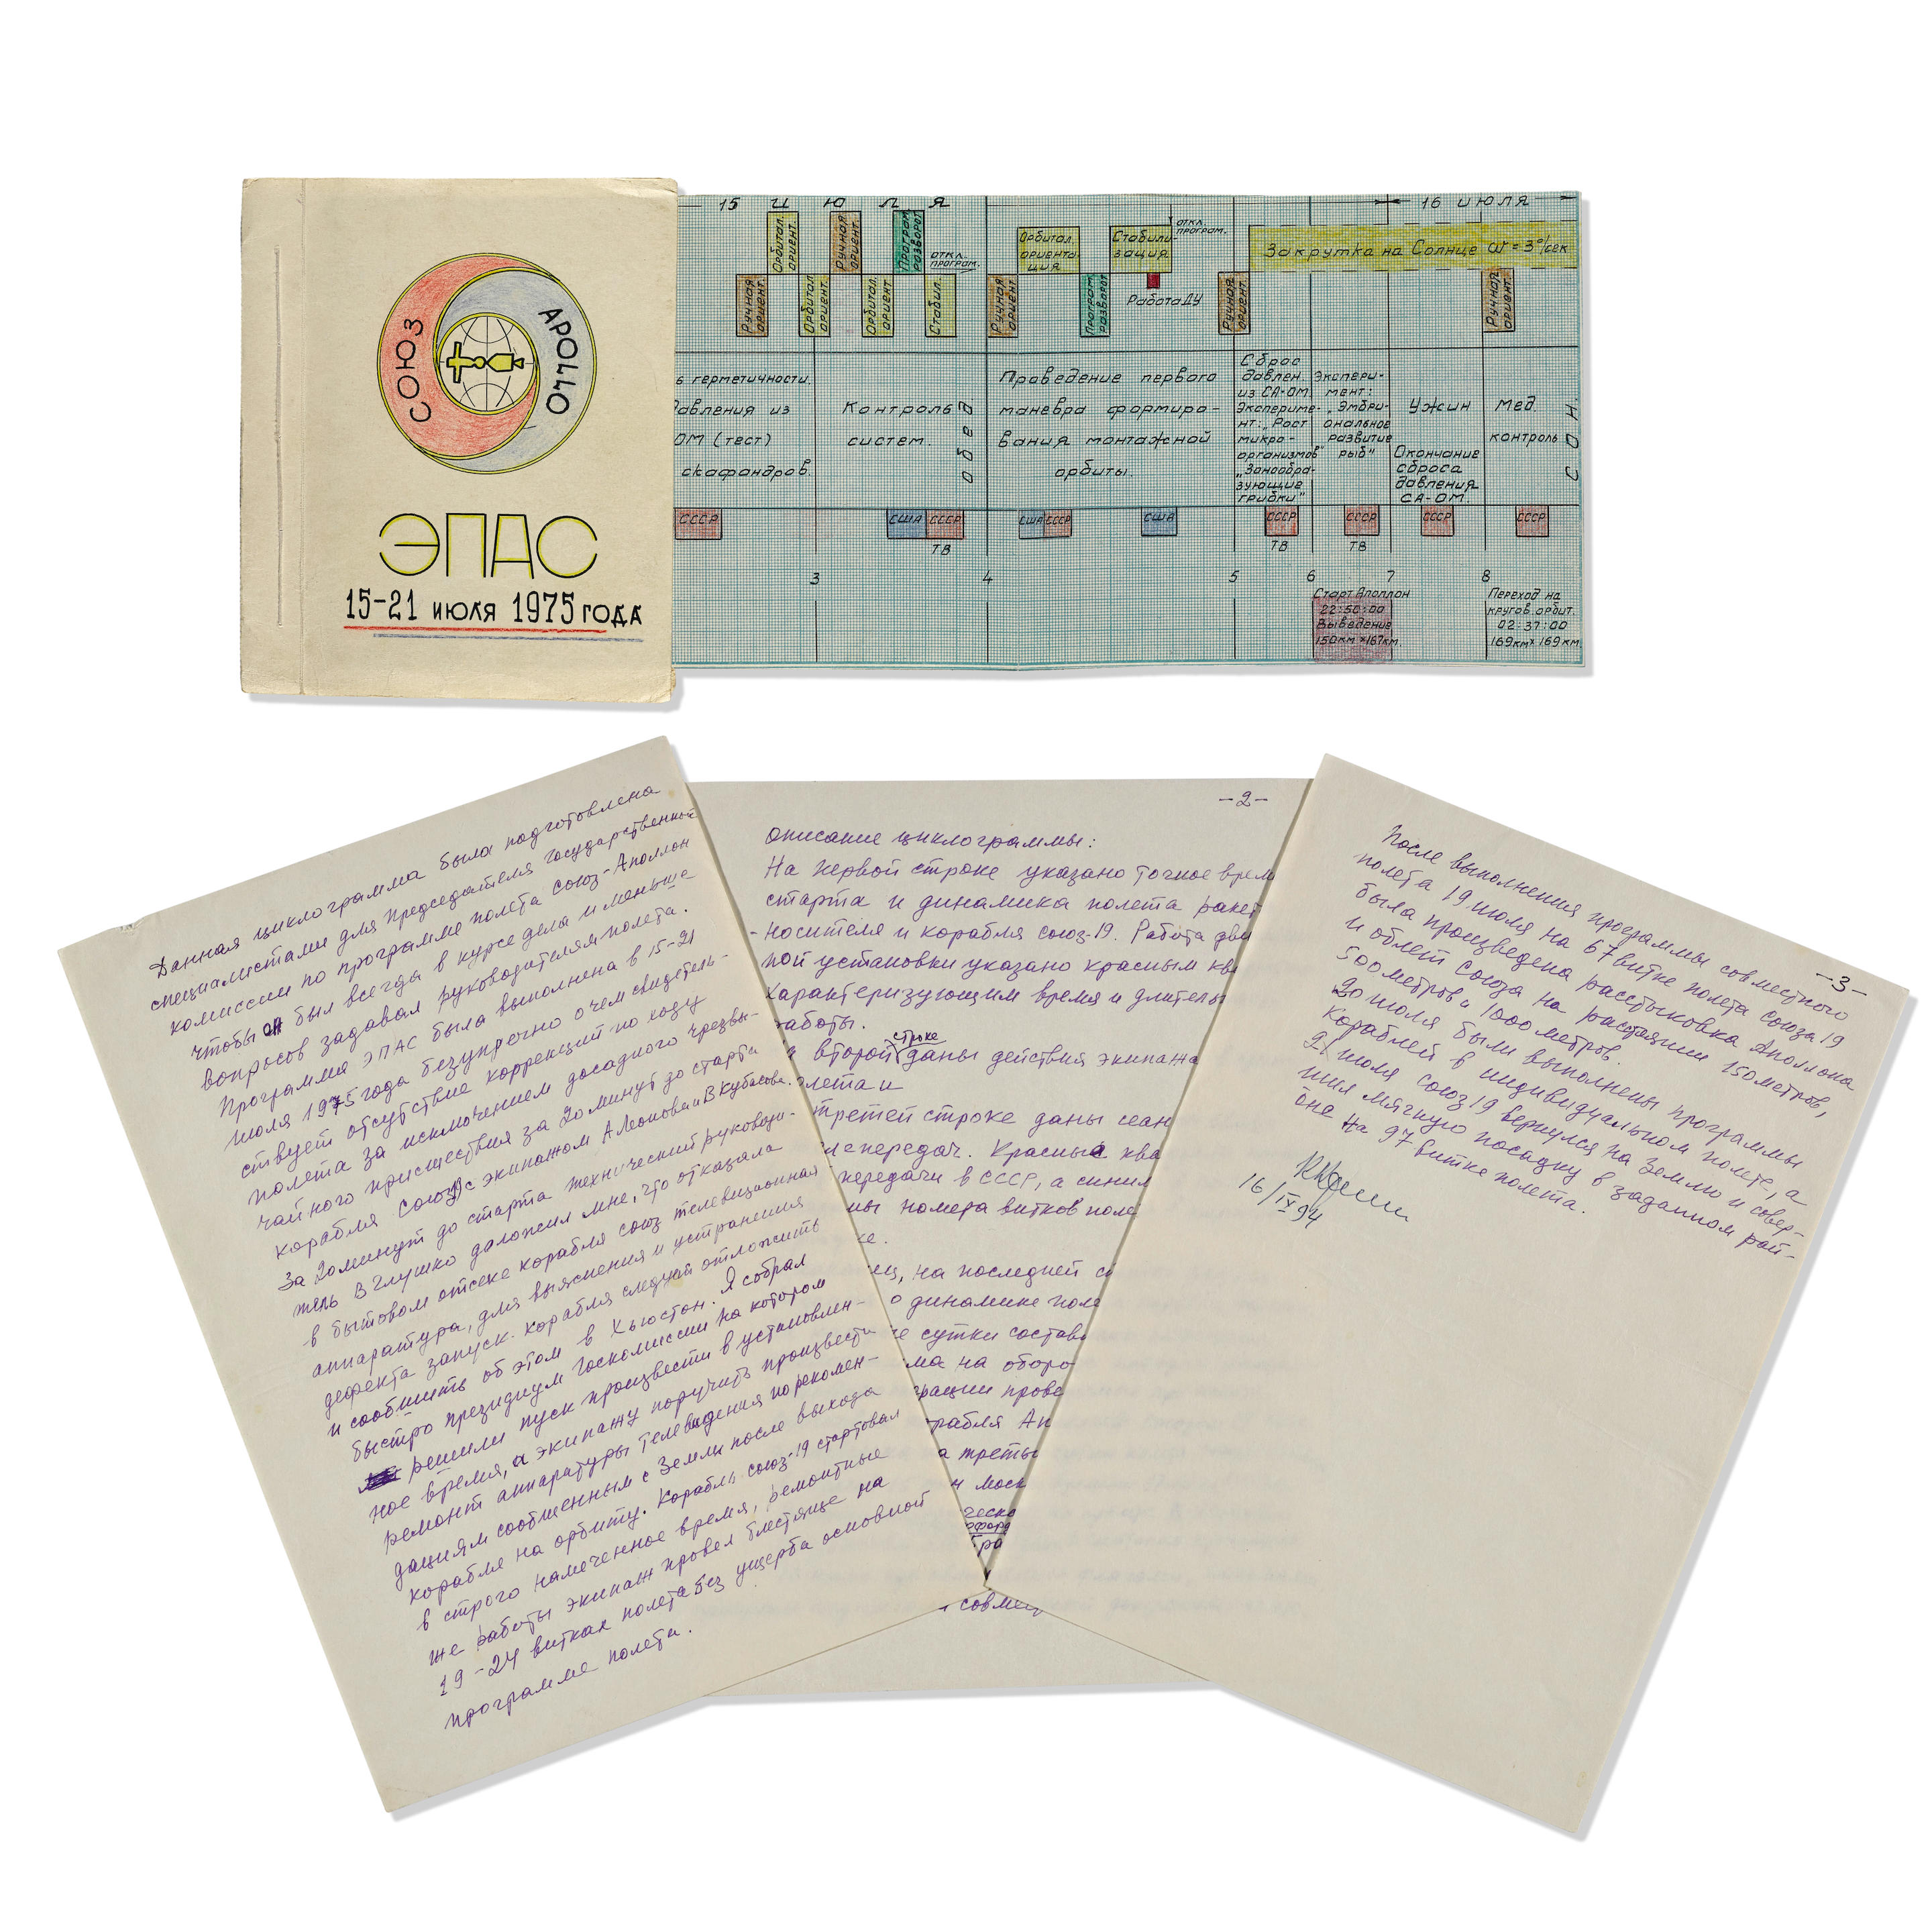 СОЮЗ
APOLLO
ЭПАС
15-21 июля 1975 года
15 июля
16 июля
Орбитал. ориент.
Ручная ориент.
Програм. разворот
откл. програм.
Орбитал. ориентация
Стабилизация
откл. програм.
Закрутка на Солнце ω = 3°/сек
Ручная ориент.
Орбитал. ориент.
Орбитал. ориент
Стабил.
Ручная ориент
Програм. разворот
Работа ДУ
Ручная ориент.
Ручная ориент.
ь герметичности.
давления из
ОМ (тест)
скафандров.
Контроль
систем.
обед
Проведение первого
маневра формиро-
вания монтажной
орбиты.
Сброс
давлен.
из СА-ОМ
Эксперимe-
нт: „Рост
микро-
организмов"
„Зонообра-
зующие
грибки"
Экспери-
мент:
„Эмбри-
ональное
развитие
рыб"
Ужин
Окончание
сброса
давления
СА-ОМ.
Мед.
контроль
СОН.
СССР
США СССР
ТВ
США СССР
США
СССР
ТВ
СССР
ТВ
СССР
СССР
3
4
5
6
7
8
Старт Аполлон
22:50:00
Выведение
150км×167км.
Переход на
кругов. орбит.
02:37:00
169км×169км
Данная циклограмма была подготовлена
специалистами для Председателя Государственной
комиссии по программе полета Союз-Аполлон
чтобы он был всегда в курсе дела и меньше
вопросов задавал руководителям полета.
Программа ЭПАС была выполнена в 15-21
июля 1975 года безупречно о чем свидетель-
ствует отсутствие коррекций по ходу
полета за исключением досадного чрезвы-
чайного присшествия за 20 минут до старта
корабля Союз с экипажом А Леонова и В Кубасова.
За 20 минут до старта технический руководи-
тель В Глушко доложил мне, что отказала
в бытовом отсеке корабля Союз телевизионная
аппаратура, для выяснения и устранения
дефекта запуск корабля следует отложить
и сообщить об этом в Хьюстон. Я собрал
быстро президиум Госкомиссии на котором
решили пуск произвести в установлен-
ное время, а экипажу поручить произвести
ремонт аппаратуры телевидения по рекомен-
дациям сообщенным с Земли после выхода
корабля на орбиту. Корабль Союз-19 стартовал
в строго намеченное время, ремонтные
же работы экипаж провел блестяще на
19-24 витках полета без ущерба основной
программе полета.
-2-
описание циклограммы:
На первой строке указано точное врем
старта и динамика полета ракет
-носителя и корабля Союз-19. Работа дви
ной установки указано красным кв
характеризующим время и длитель
работы.
второй строке даны действия экипажа
олета и
третей строке даны сеан
лепередач. Красные ква
передачи в СССР, а синим
ны номера витков поле
ке.
ец, на последней с
о динамике поле
е сутки состав
ма на оборо
рации прове
рабля Ап
а треть
и моск
ческо
офор
бра
совмес
-3-
После выполнения программы совместного
полета 19 июля на 67 витке полета Союза 19
была произведена расстыковка Аполлона
и облет Союза на растоянии 150 метров,
500 метров и 1000 метров.
20 июля были выполнены программы
кораблей в индивидуальном полете, а
21 июля Союз 19 вернулся на Землю и совер-
шил мягкую посадку в заданном рай-
оне на 97 витке полета.
16/IX 94